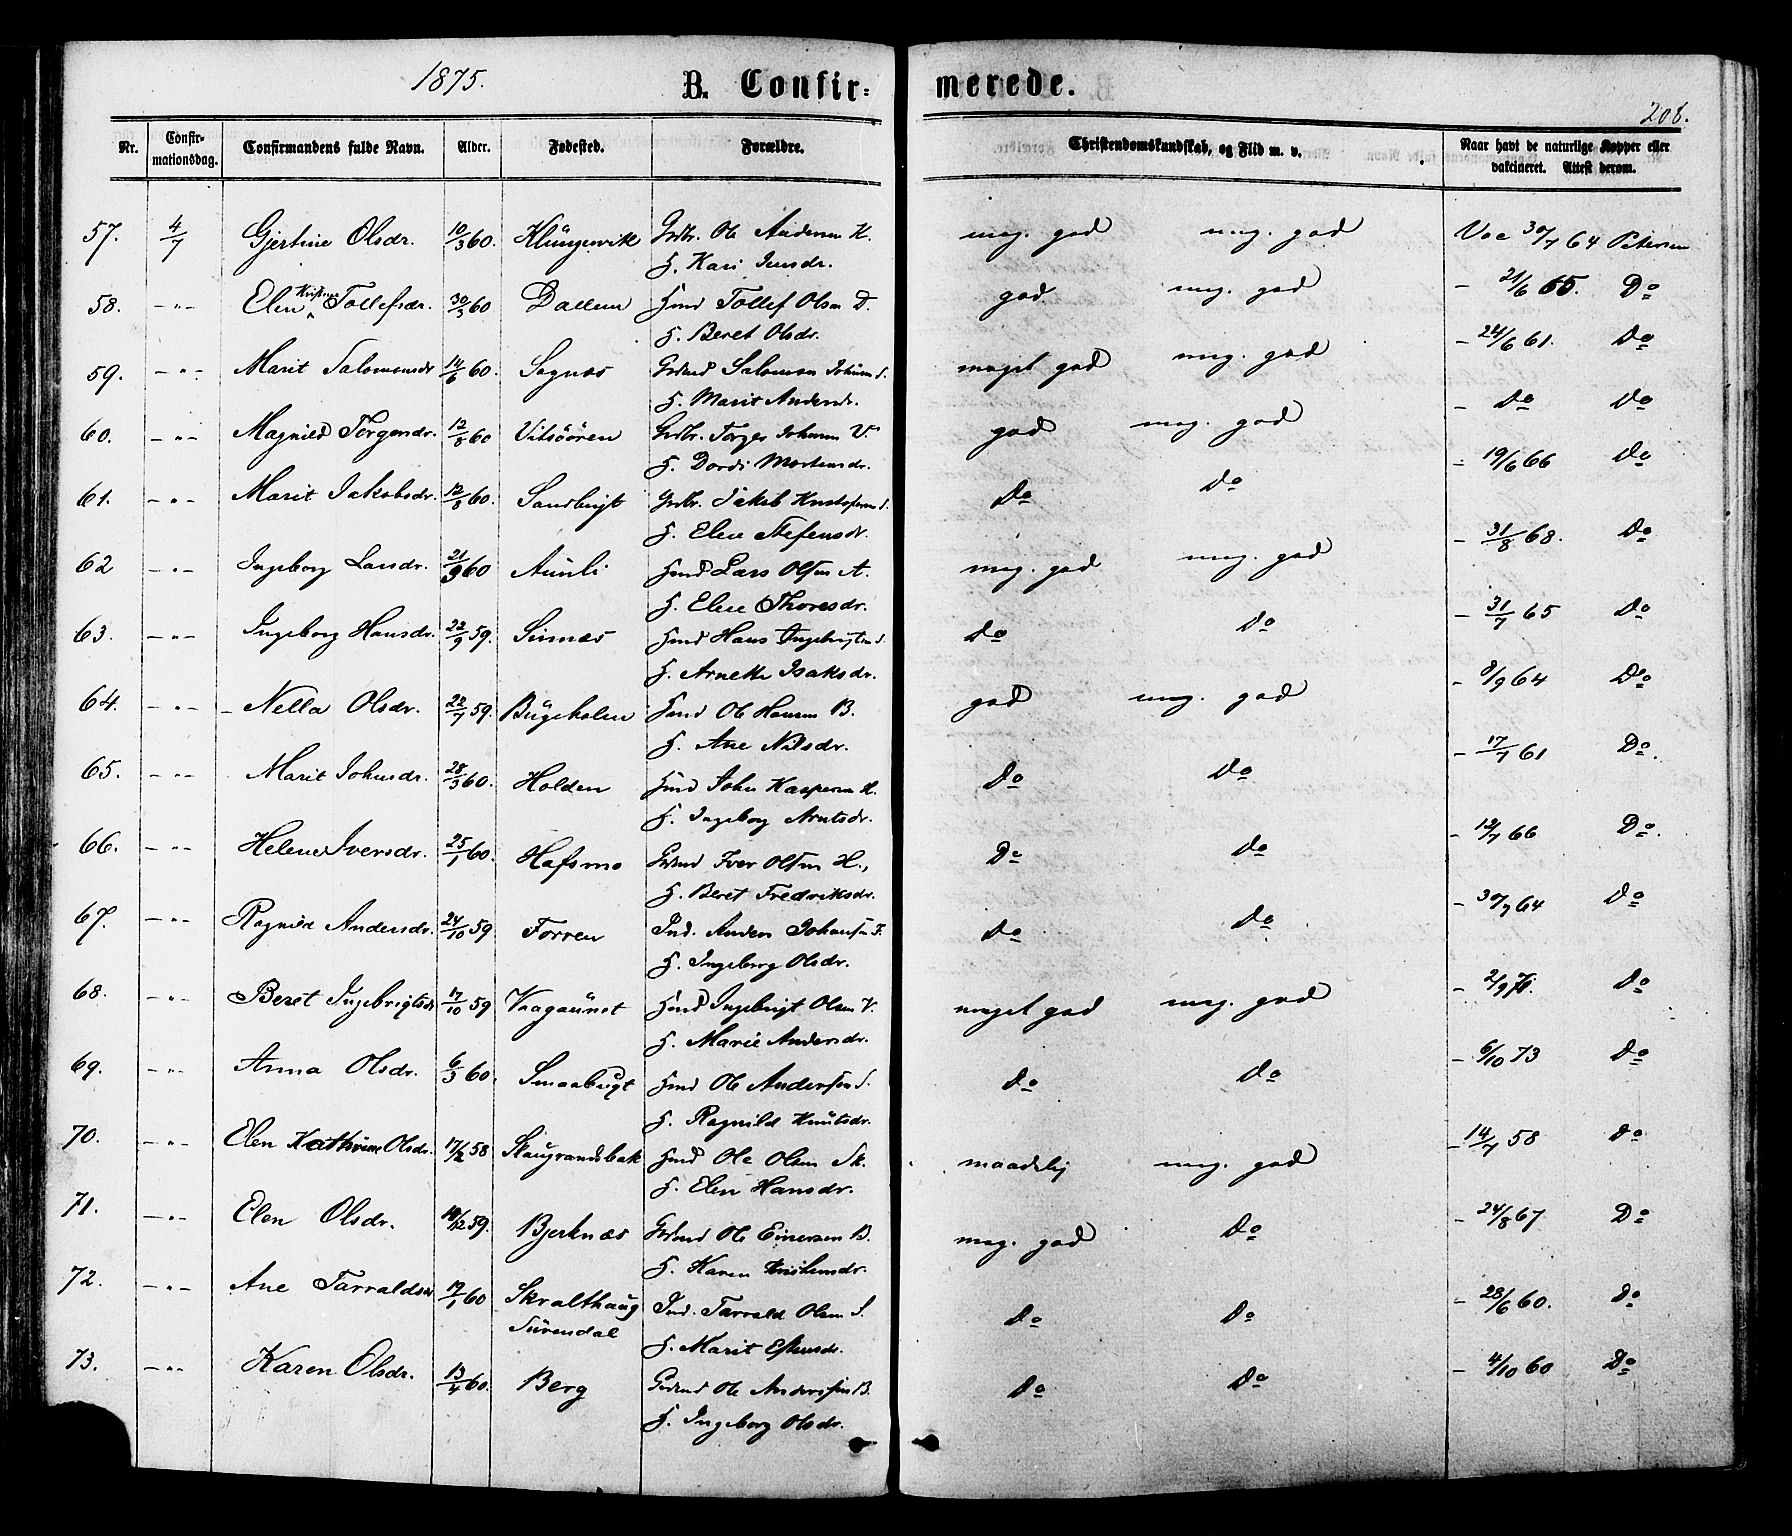 1875.
B. Confirmerede.
208.
Nr. Confirmationsdag. Confirmandens fulde Navn. Alder. Fødested. Forældre. Christendomskundskab, og Flid m. v. Naar havt de naturlige Kopper eller vakcineret. Attest derom.
57. 4/7 Gjertine Olsdr. 10/3 60. Klüngervik Grdbr. Ole Andersen K. meg. god meg. god Vac 30/7 64 Petersen
H. Kari Jensdr.
58. -"- Elen Kristine Tollefsdr. 30/3 60 Dallum Hmd Tollef Olsen D. god meg. god - 21/6 65. Do
H. Beret Olsdr.
59. -"- Marit Salomonsdr 14/6 60. Sognæs Grdmd Salomon Johnsen S. meget god meg. god - 24/6 61. Do
H. Marit Andersdr.
60. -"- Magnild Torgersdr. 12/8 60 Vitsöören Grdbr. Torger Johnsen V. god meg. god - Do Do
H. Dordi Mortensdr.
61. -"- Marit Jakobsdr. 12/8 60. Sandbugt Grdbr. Jakob Kristofersen S. Do Do - 19/6 66 Do
H. Elen Stefensdr.
62 -"- Ingeborg Larsdr. 21/9 60 Aunli Hmd Lars Olsen A. meg. god meg. god - 31/8 68. Do
H. Elen Thoresdr.
63. -"- Ingeborg Hansdr. 22/9 59. Sinnæs Hmd Hans Ingebrigtsen S. Do Do - 31/7 65 Do
H. Arnette Isaksdr.
64. -"- Nella Olsdr. 22/7 59. Bügeholen Hmd Ole Hansen B. god meg. god - 8/9 64 Do
H. Ane Nilsdr.
65. -"- Marit Johnsdr. 28/3 60. Holden Hmd John Kaspersen H. Do Do - 17/7 61 Do.
H. Ingeborg Arntsdr.
66. -"- Helene Iversdr. 25/1 60. Hafsmo Grdmd Iver Olsen H., Do Do - 12/7 66 Do.
H. Beret Fredriksdr.
67. -"- Ragnild Andersdr. 24/10 59 Forren Ind. Anders Johansen F. Do Do - 30/7 64 Do
H. Ingeborg Olsdr.
68. -"- Beret Ingebrigtsdr 17/10 59 Vaagaünet Hmd Ingebrigt Olsen V. meget god meg. god - 2/9 70. Do
H. Marie Andersdr.
69. -"- Anna Olsdr. 6/3 60. Smaabugt Hmd Ole Andersen S. Do Do - 6/10 73 Do
H. Ragnild Knütsdr.
70. -"- Elen Kathrine Olsdr. 17/12 58 Skaugrandsbak Hmd Ole Olsen Sk. maadelig meg. god - 14/7 58 Do
H. Elen Hansdr.
71. -"- Elen Olsdr. 14/12 59. Bjerknæs Grdmd Ole Einersen B. meg. god Do - 24/8 67 Do
H. Karen Kristensdr.
72. -"- Ane Tarraldsdr 19/1 60 Skralthaug Sürendal Ind. Tarrald Olsen S. Do Do - 28/6 60. Do
H. Marit Estensdr.
73. -"- Karen Olsdr. 13/4 60. Berg Grdmd Ole Andersen B. Do Do - 4/10 60 Do
H. Ingeborg Olsdr.